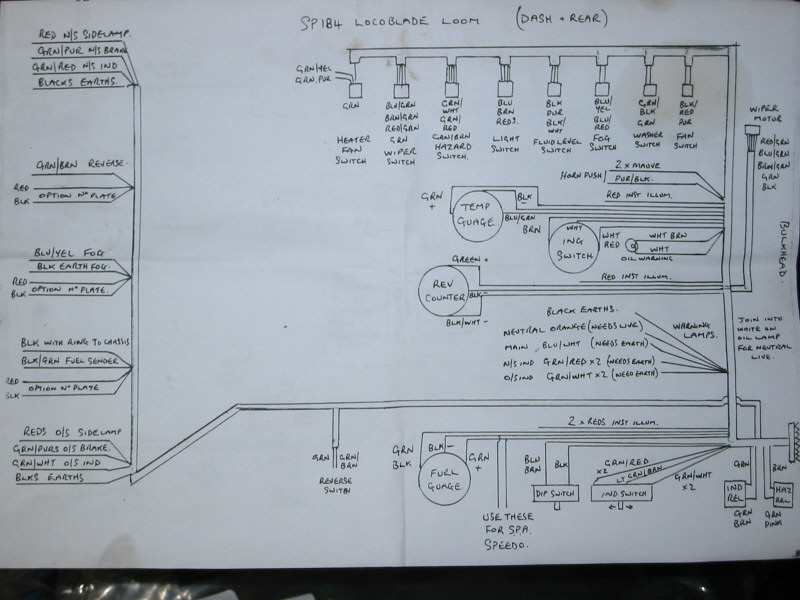 SP1B4 LOCOBLADE LOOM (DASH + REAR)
RED N/S SIDELAMP.
GRN/PUR N/S BRAKE
GRN/RED N/S IND
BLACKS EARTHS.
GRN/BRN REVERSE.
RED
BLK OPTION Nº PLATE
BLU/YEL FOG
BLK EARTH FOG.
RED
BLK OPTION Nº PLATE.
BLK WITH RING TO CHASSIS
BLK/GRN FUEL SENDER
RED
BLK OPTION Nº PLATE
REDS O/S SIDELAMP
GRN/PURS O/S BRAKE.
GRN/WHT O/S IND
BLKS EARTHS
GRN/YEL
GRN.PUR
GRN
HEATER
FAN
SWITCH
BLU/GRN
BRN/GRN
RED/GRN
GRN
WIPER
SWITCH
GRN/
WHT
GRN/
RED
GRN/BRN
HAZARD
SWITCH.
BLU
BRN
REDS.
LIGHT
SWITCH
BLK
PUR
BLK/
WHT
FLUID LEVEL
SWITCH
BLU/
YEL
BLU/
RED
FOG
SWITCH
GRN/
BLK
GRN
WASHER
SWITCH
BLK/
RED
PUR
FAN
SWITCH
WIPER
MOTOR
RED/GRN
BLU/GRN
BRN/GRN
GRN
BLK
BULKHEAD.
HORN PUSH
2 x MAUVE
PUR/BLK.
RED INST ILLUM.
GRN
+
TEMP
GUAGE.
BLK
-
BLU/GRN
BRN
WHT
ING
SWITCH
WHT
RED
WHT BRN
WHT
OIL WARNING
GREEN +
RED INST ILLUM.
REV
COUNTER
BLK-
BLK/WHT -
BLACK EARTHS.
NEUTRAL ORANGE (NEEDS LIVE)
MAIN BLU/WHT (NEEDS EARTH)
N/S IND GRN/RED x 2 (NEEDS EARTH)
O/S IND GRN/WHT x 2 (NEED EARTH)
WARNING
LAMPS.
JOIN INTO
WHITE ON
OIL LAMP
FOR NEUTRAL
LIVE.
2 x REDS INST ILLUM.
GRN
GRN/
BRN
REVERSE
SWITCH
GRN
BLK
BLK -
GRN
+
FUEL
GUAGE.
USE THESE
FOR S.P.A.
SPEEDO.
BLU
BRN
BLK
DIP SWITCH
GRN/RED
x2
LT GRN/BRN
GRN/WHT
x 2
IND SWITCH
GRN
IND
REL
GRN
BRN
BRN
HAZ
REL
GRN